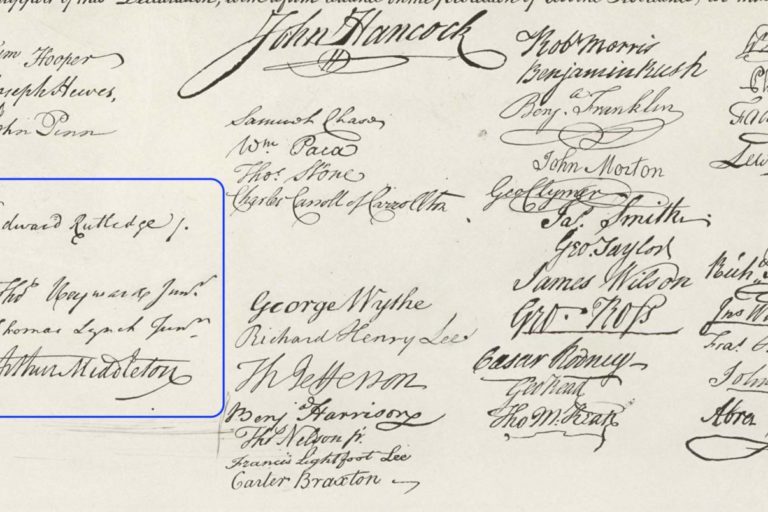 of this Declaration, with a firm reliance on the protection of divine Providence, we
Hooper
oseph Hewes,
ohn Penn
dward Rutledge /.
Tho.s Heyward Jun.r
homas Lynch Jun.r
Arthur Middleton
John Hancock
Samuel Chase
Wm. Paca
Thos. Stone
Charles Carroll of Carrollton
George Wythe
Richard Henry Lee
Th Jefferson
Benj.a Harrison
Ths Nelson jr.
Francis Lightfoot Lee
Carter Braxton
Robt Morris
Benjamin Rush
Benj.a Franklin
John Morton
Geo Clymer
Jas. Smith.
Geo. Taylor
James Wilson
Geo. Ross
Caesar Rodney
Geo Read
Tho M:Kean
Fra
Lew
Rich
Jno W
Fras.
John
Abra